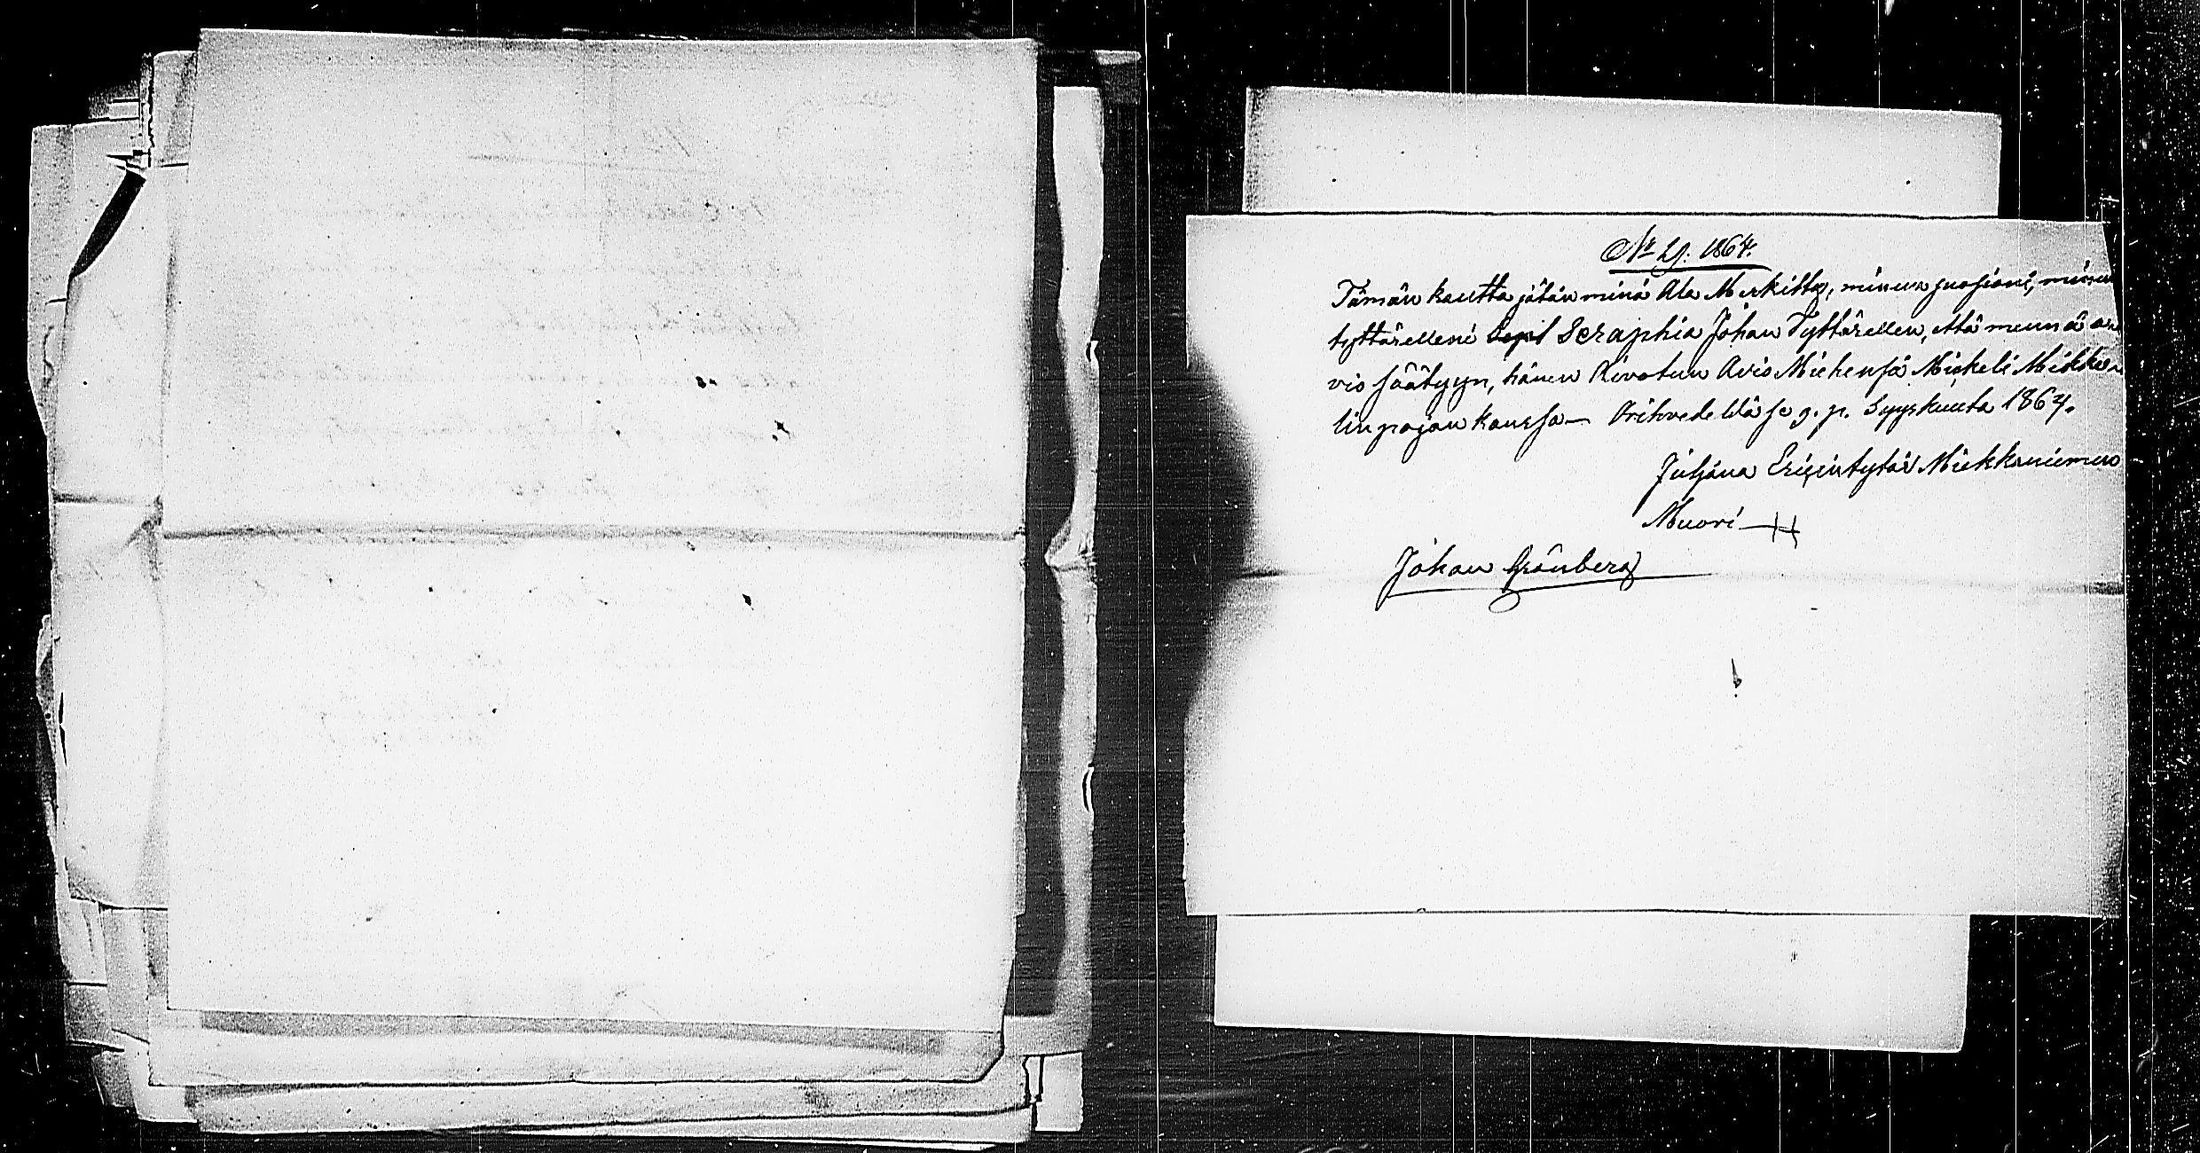 No 29. 1864.
Tämän kautta jätän minä Ala Merkitty, minun suosioni, minun
tyttärelleni Seraphia Johan Tyttärellen, että mennä a
vio säätyyn, hänen Rivatun Avio Miehensä Mickeli Mikke
lin pojan kanssa — Orihvedeldä se 9. p. Syyskuuta 1864.
Juljana Ericin tytär Miekkaniemen
Muori
Johan Grönberg